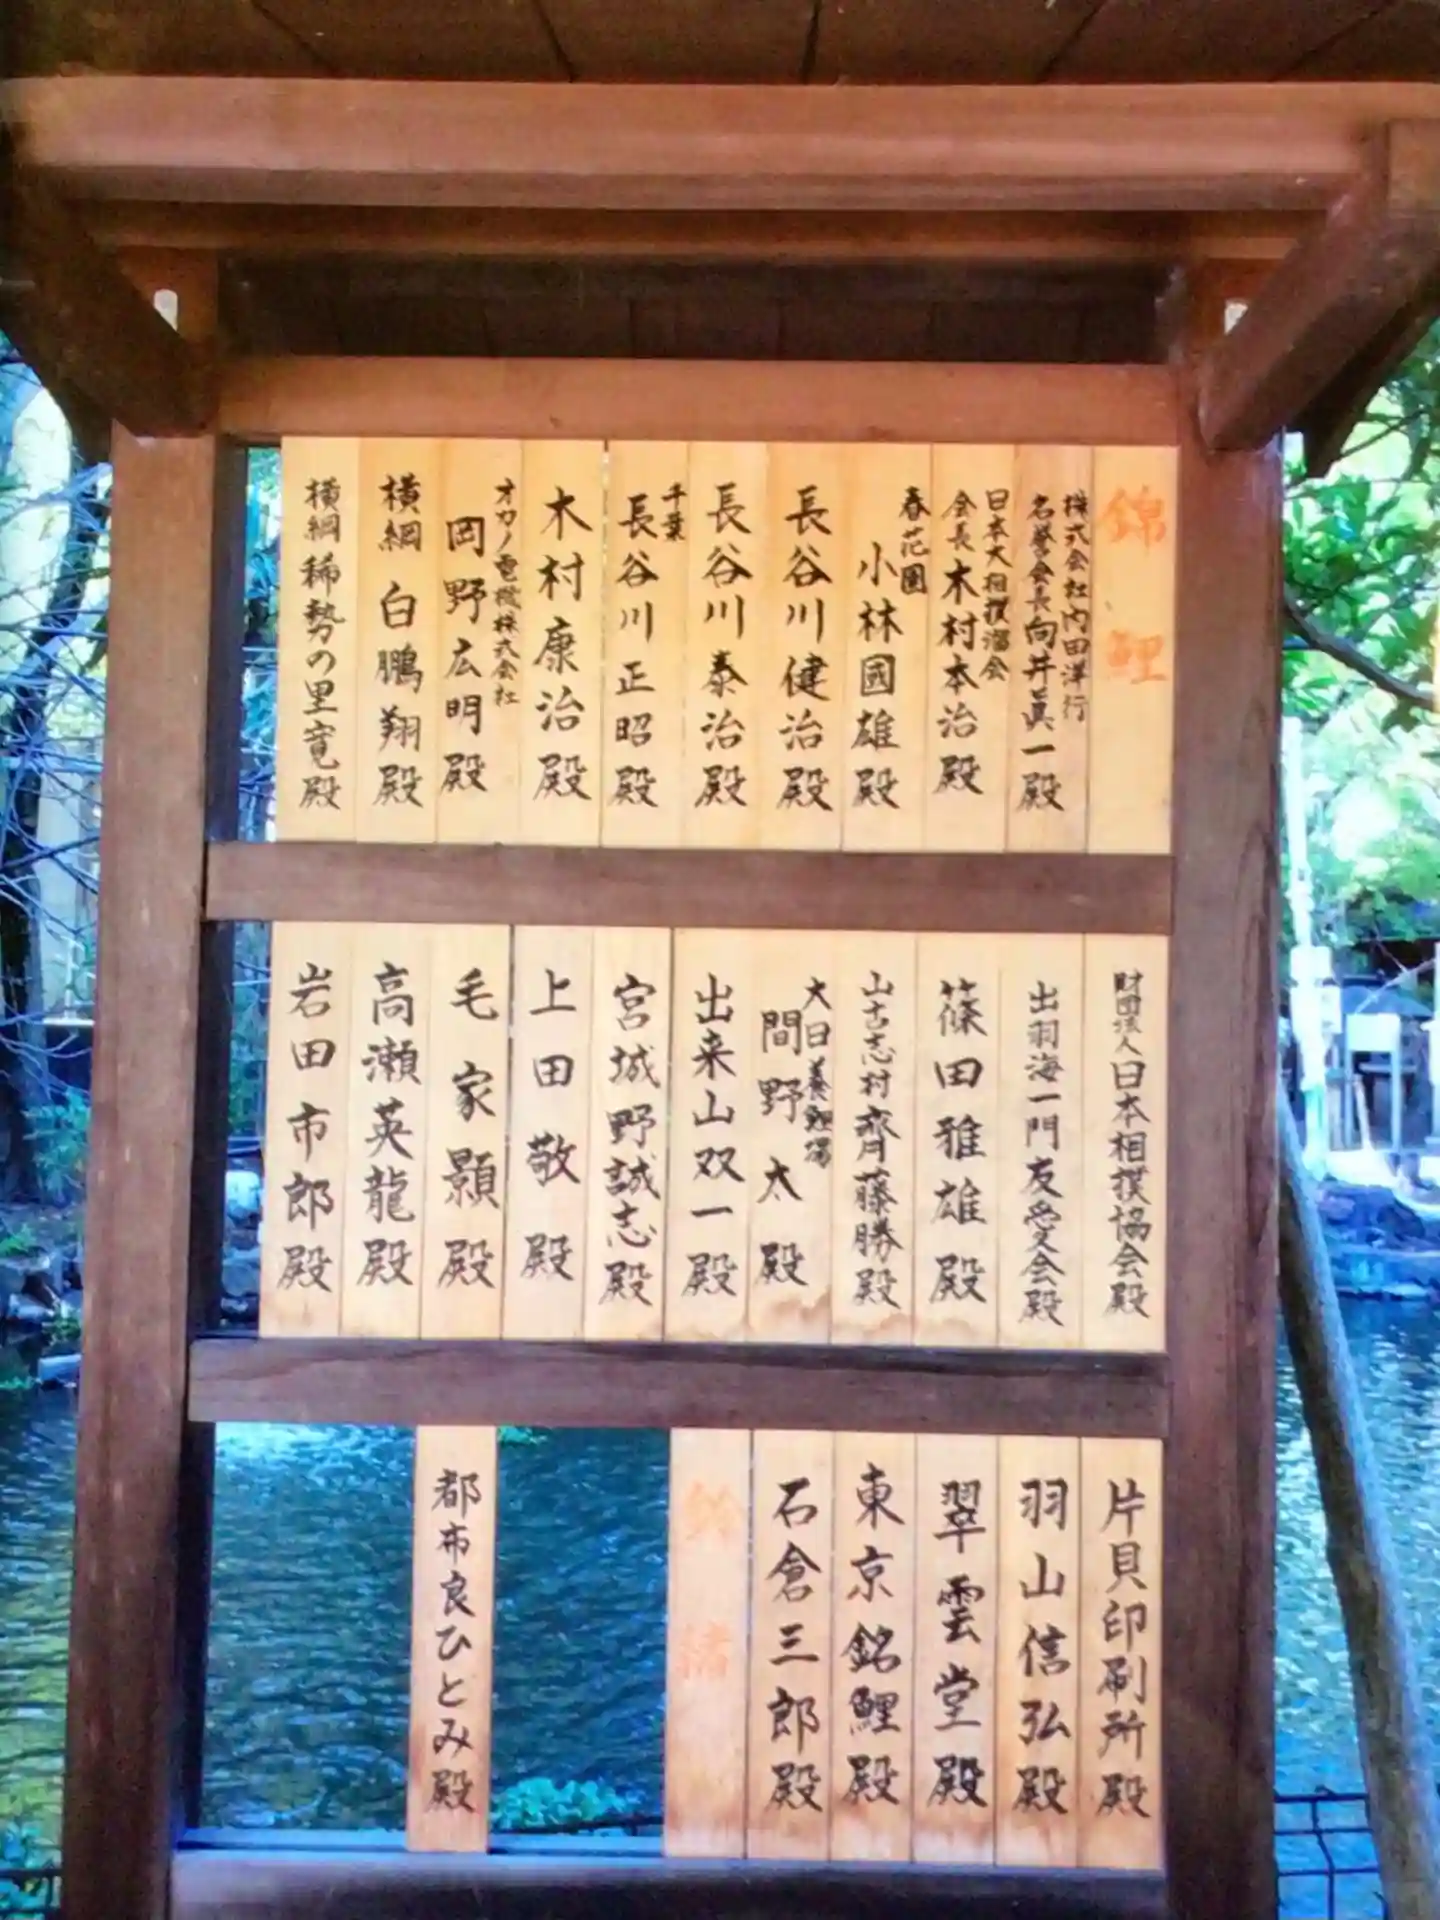 錦鯉
株式会社内田洋行
名誉会長向井眞一殿
日本大相撲溜会
会長木村本治殿
春花園
小林國雄殿
長谷川健治殿
長谷川泰治殿
千葉
長谷川正昭殿
木村康治殿
オカノ電機株式会社
岡野広明殿
横綱白鵬翔殿
横綱稀勢の里寛殿
財団法人日本相撲協会殿
出羽海一門友愛会殿
篠田雅雄殿
山古志村齊藤勝殿
大日養鯉場
間野太殿
出来山双一殿
宮城野誠志殿
上田敬殿
毛家顥殿
高瀬英龍殿
岩田市郎殿
片貝印刷所殿
羽山信弘殿
翠雲堂殿
東京銘鯉殿
石倉三郎殿
鈴緒
都布良ひとみ殿